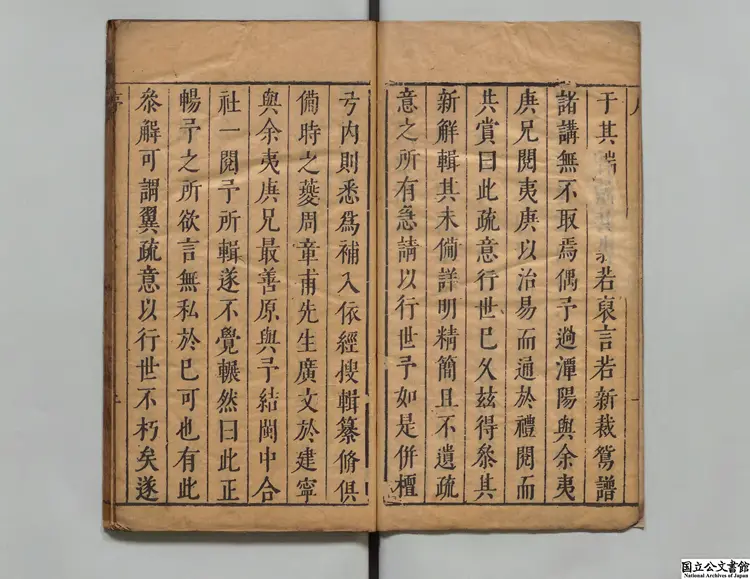 于其端
若裒言若新裁鴛譜
諸講無不取焉偶予過潭陽與余夷
庚兄閱夷庚以治易而通於禮閱而
共賞曰此疏意行世已久茲得叅其
新解輯其未備詳明精簡且不遺疏
意之所有急請以行世予如是併檀
弓內則悉爲補入依經搜輯纂脩俱
備時之夔周章甫先生廣文於建寧
與余夷庚兄最善原與予結閩中合
社一閱予所輯遂不覺囅然曰此正
暢予之所欲言無私於已可也有此
叅解可謂翼疏意以行世不朽矣遂
国立公文書館
National Archives of Japan